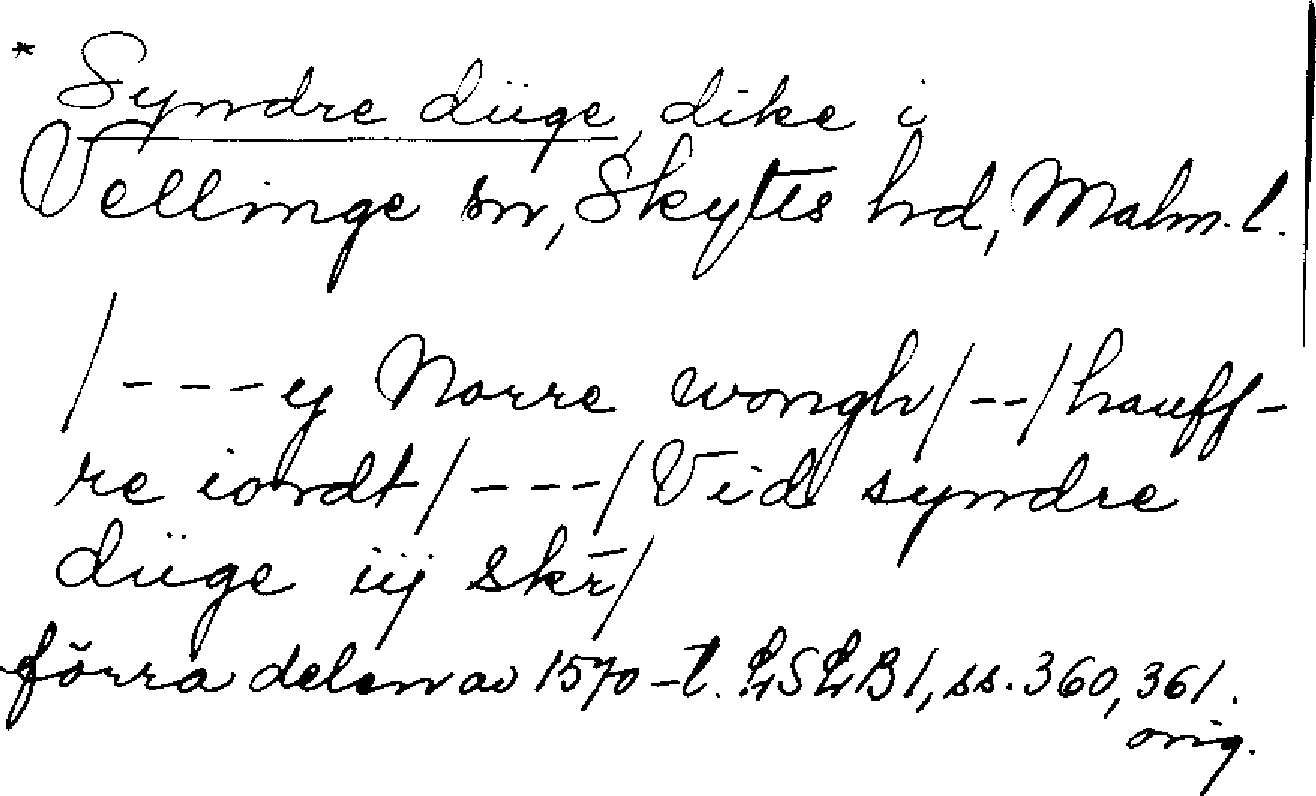 * Syndre düge, dike i
Vellinge sn, Skytts hd, Malm. l.
/---ej Norre wongh/--/hauff-
re iordt/---/Vid syndre
düge iij skr̄/
förra delen av 1570-t. LSLB1, ss. 360, 361.
orig.